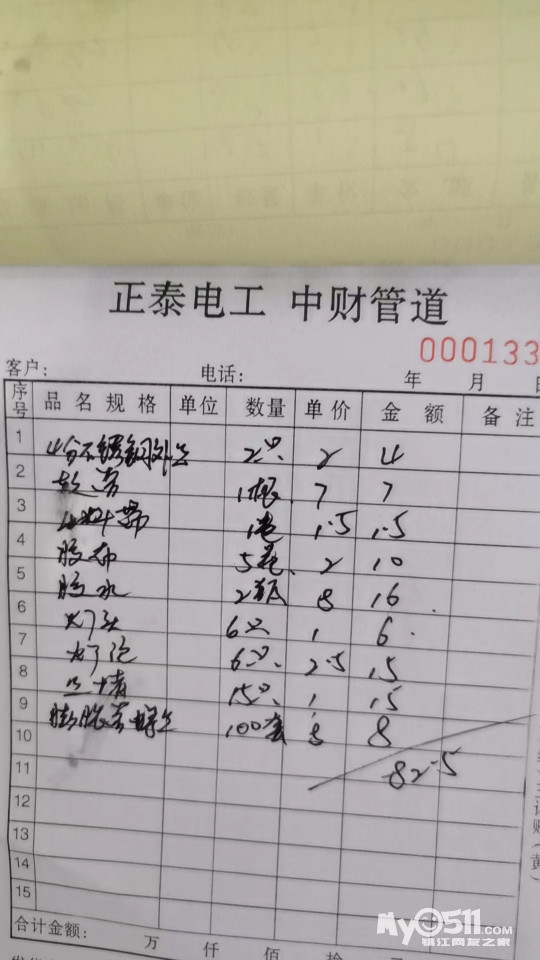 正泰电工 中财管道
000133
客户: 电话: 年 月 日
序号 品名规格 单位 数量 单价 金额 备注
1
4分不锈钢外丝 2只 2 4
2
软管 1根 7 7
3
生料带 1卷 1.5 1.5
4
胶布 5卷 2 10
5
胶水 2瓶 8 16
6
灯头 6只 1 6
7
灯泡 6只 2.5 15
8
丝堵 15只 1 15
9
膨胀带螺丝 100套 8 8
10
82.5
11
12
13
14
15
合计金额: 万 仟 佰 拾
(黄)
MY0511.com
镇江网友之家